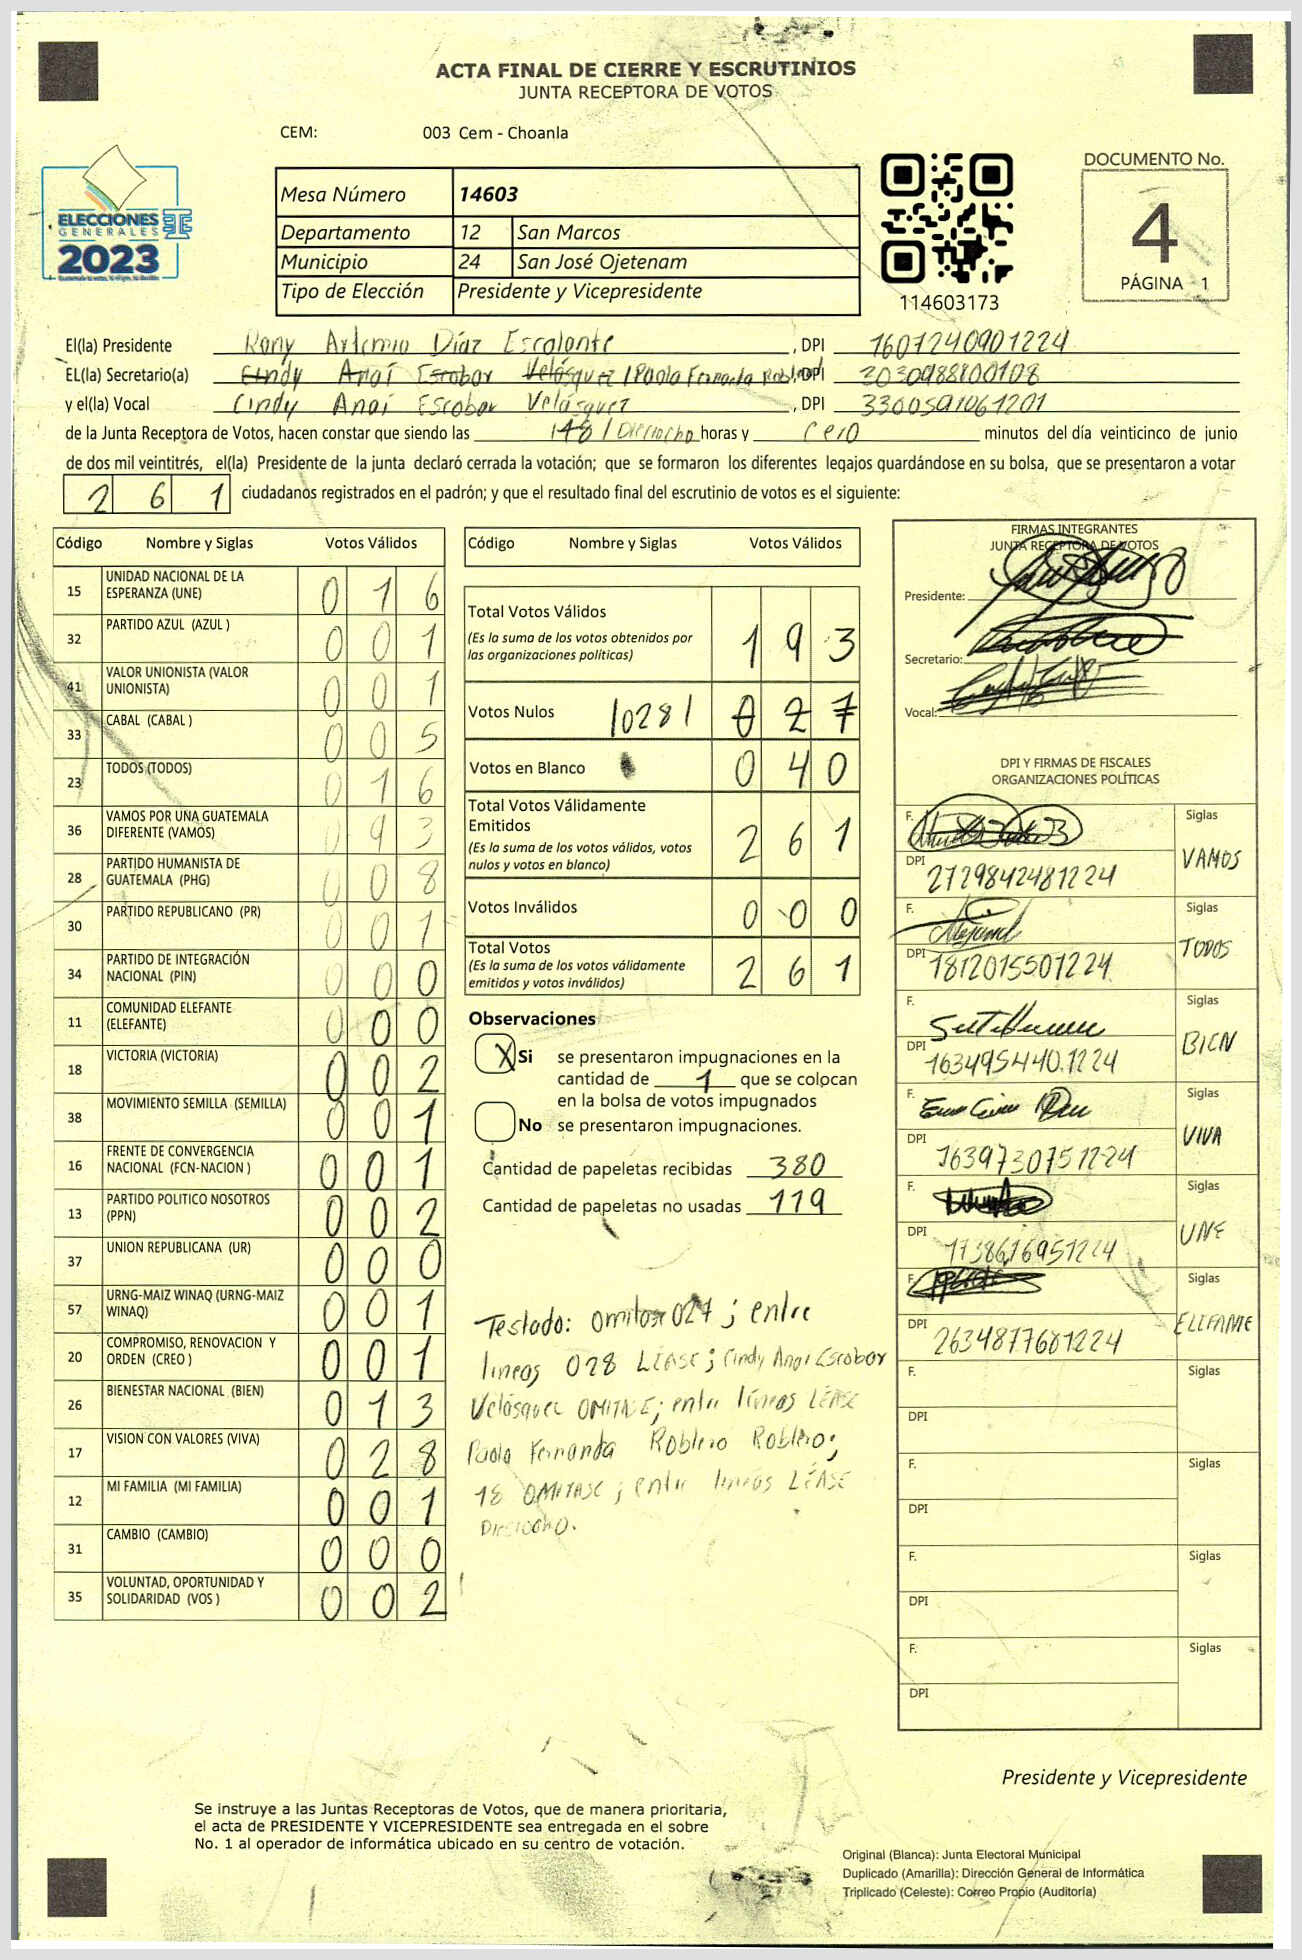 ACTA FINAL DE CIERRE Y ESCRUTINIOS
JUNTA RECEPTORA DE VOTOS
CEM: 003 Cem - Choanla
ELECCIONES
GENERALES
2023
Mesa Número 14603
Departamento 12 San Marcos
Municipio 24 San José Ojetenam
Tipo de Elección Presidente y Vicepresidente
114603173
DOCUMENTO No.
4
PÁGINA 1
El(la) Presidente Rony Artemio Díaz Escalante , DPI 1607240901224
EL(la) Secretario(a) Cindy Anaí Escobar Velásquez / Paola Fernanda , DPI 3030988100108
y el(la) Vocal Cindy Anaí Escobar Velásquez , DPI 3300591061201
de la Junta Receptora de Votos, hacen constar que siendo las 18 / Dieciocho horas y cero minutos del día veinticinco de junio
de dos mil veintitrés, el(la) Presidente de la junta declaró cerrada la votación; que se formaron los diferentes legajos guardándose en su bolsa, que se presentaron a votar
2 6 1 ciudadanos registrados en el padrón; y que el resultado final del escrutinio de votos es el siguiente:
Código Nombre y Siglas Votos Válidos
15 UNIDAD NACIONAL DE LA ESPERANZA (UNE) 0 1 6
32 PARTIDO AZUL (AZUL ) 0 0 1
41 VALOR UNIONISTA (VALOR UNIONISTA) 0 0 1
33 CABAL (CABAL ) 0 0 5
23 TODOS (TODOS) 0 1 6
36 VAMOS POR UNA GUATEMALA DIFERENTE (VAMOS) 0 9 3
28 PARTIDO HUMANISTA DE GUATEMALA (PHG) 0 0 8
30 PARTIDO REPUBLICANO (PR) 0 0 1
34 PARTIDO DE INTEGRACIÓN NACIONAL (PIN) 0 0 0
11 COMUNIDAD ELEFANTE (ELEFANTE) 0 0 0
18 VICTORIA (VICTORIA) 0 0 2
38 MOVIMIENTO SEMILLA (SEMILLA) 0 0 1
16 FRENTE DE CONVERGENCIA NACIONAL (FCN-NACION ) 0 0 1
13 PARTIDO POLITICO NOSOTROS (PPN) 0 0 2
37 UNION REPUBLICANA (UR) 0 0 0
57 URNG-MAIZ WINAQ (URNG-MAIZ WINAQ) 0 0 1
20 COMPROMISO, RENOVACION Y ORDEN (CREO ) 0 0 1
26 BIENESTAR NACIONAL (BIEN) 0 1 3
17 VISION CON VALORES (VIVA) 0 2 8
12 MI FAMILIA (MI FAMILIA) 0 0 1
31 CAMBIO (CAMBIO) 0 0 0
35 VOLUNTAD, OPORTUNIDAD Y SOLIDARIDAD (VOS ) 0 0 2
Código Nombre y Siglas Votos Válidos
Total Votos Válidos 1 9 3
(Es la suma de los votos obtenidos por
las organizaciones políticas)
Votos Nulos /028/ 0 2 7
Votos en Blanco 0 4 0
Total Votos Válidamente
Emitidos 2 6 1
(Es la suma de los votos válidos, votos
nulos y votos en blanco)
Votos Inválidos 0 0 0
Total Votos
(Es la suma de los votos válidamente 2 6 1
emitidos y votos inválidos)
Observaciones
X Si se presentaron impugnaciones en la
cantidad de 1 que se colocan
en la bolsa de votos impugnados
No se presentaron impugnaciones.
Cantidad de papeletas recibidas 380
Cantidad de papeletas no usadas 119
Testado: omitase 027 ; entre
lineas 028 LÉASE ; Cindy Anaí Escobar
Velásquez OMITASE; entre líneas LÉASE
Paola Fernanda Roblero Roblero;
18 OMITASE ; entre lineas LÉASE
Dieciocho.
FIRMAS INTEGRANTES
JUNTA RECEPTORA DE VOTOS
Presidente:
Secretario:
Vocal:
DPI Y FIRMAS DE FISCALES
ORGANIZACIONES POLÍTICAS
F. Siglas
DPI 2729842481224 VAMOS
F. Siglas
DPI 1812015501224 TODOS
F. Siglas
DPI 1634954401224 BIEN
F. Siglas
DPI 1639730751224 VIVA
F. Siglas
DPI 1738616951224 UNE
F. Siglas
DPI 2634817681224 ELEFANTE
F. Siglas
DPI
F. Siglas
DPI
F. Siglas
DPI
F. Siglas
DPI
Presidente y Vicepresidente
Se instruye a las Juntas Receptoras de Votos, que de manera prioritaria,
el acta de PRESIDENTE Y VICEPRESIDENTE sea entregada en el sobre
No. 1 al operador de informática ubicado en su centro de votación.
Original (Blanca): Junta Electoral Municipal
Duplicado (Amarilla): Dirección General de Informática
Triplicado (Celeste): Correo Propio (Auditoría)